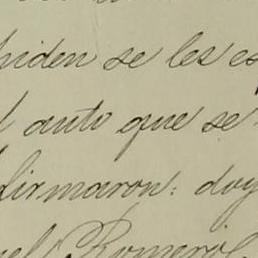 piden se les es
auto que se
firmaron: doy
Romero